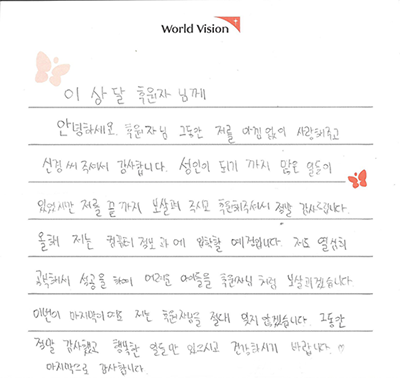 World Vision
이 상 달 후원자 님께
안녕하세요. 후원자님 그동안 저를 아낌 없이 사랑해주고
신경 써 주셔서 감사합니다. 성인이 되기 까지 많은 일들이
있었지만 저를 끝까지 보살펴 주시고 후원해주셔서 정말 감사드립니다.
올해 저는 컴퓨터 정보 과에 입학할 예정입니다. 저도 열심히
공부해서 성공을 하여 어려운 아이들을 후원자님 처럼 보살피겠습니다.
이번이 마지막이어도 저는 후원자님을 절대 잊지 않겠습니다. 그동안
정말 감사했고 행복한 일들만 있으시고 건강하시기 바랍니다. ♡
마지막으로 감사합니다.